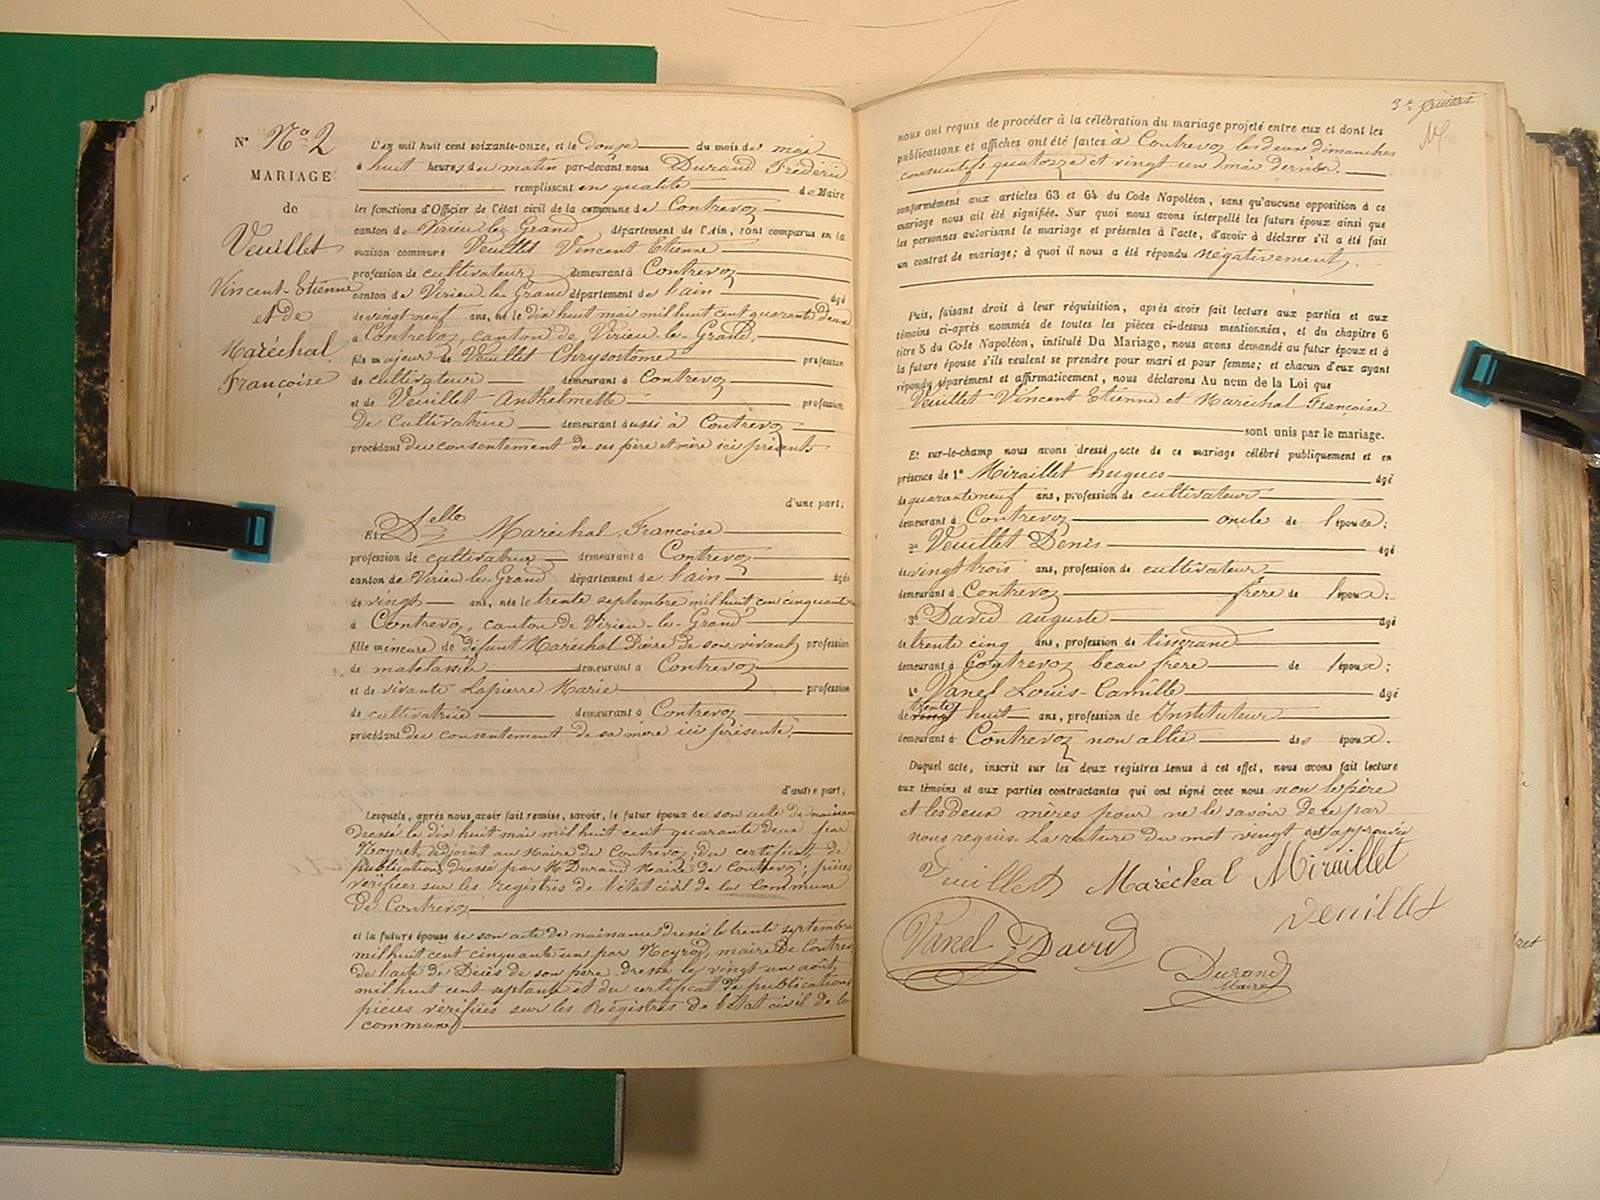 N° N° 2
MARIAGE
de
Veuillet
Vincent-Etienne
et de
Maréchal
Françoise
L'an mil huit cent soixante-onze, et le douze du mois de mai
à huit heures du matin par-devant nous Durand Frédéric
remplissant en qualité de Maire
les fonctions d'Officier de l'état civil de la commune de Contrevoz
canton de Virieu-le-Grand département de l'Ain, sont comparus en la
maison commune Veuillet Vincent Etienne
profession de cultivateur demeurant à Contrevoz
canton de Virieu-le-Grand département de l'ain âgé
de vingt neuf ans, né le dix huit mai mil huit cent quarante deux
à Contrevoz, canton de Virieu-le-Grand
fils majeur de Veuillet Chrysostôme profession
de cultivateur demeurant à Contrevoz
et de Veuillet Anthelmette profession
De cultivatrice demeurant aussi à Contrevoz
procédant du consentement de ses père et mère ici présents
d'une part;
Et Delle Maréchal Françoise
profession de cultivatrice demeurant à Contrevoz
canton de Virieu-le-Grand département de l'ain âgée
de vingt ans, née le trente septembre mil huit cent cinquante
à Contrevoz, canton de Virieu-le-Grand
fille mineure de défunt Maréchal Pierre de son vivant profession
de matelassier demeurant à Contrevoz
et de vivante Lapierre Marie profession
de cultivatrice demeurant à Contrevoz
procédant du consentement de sa mère ici présente.
d'autre part;
Lesquels, après nous avoir fait remise, savoir, le futur époux de son acte de naissance
Dressé le dix huit mai mil huit cent quarante deux par
Neyret, adjoint au Maire de Contrevoz, du certificat de
publications dressé par M Durand Maire de Contrevoz; pièces
vérifiées sur les registres de l'état civil de la commune
de Contrevoz
et la future épouse de son acte de naissance dressé le trente septembre
mil huit cent cinquante un par Neyrod, maire de Contrevoz
de l'acte de Décès de son père dressé le vingt un août
mil huit cent septante et du certificat de publications
pièces vérifiées sur les Registres de l'état civil de la
commune
3e
nous ont requis de procéder à la célébration du mariage projeté entre eux et dont les
publications et affiches ont été faites à Contrevoz les deux dimanches
consecutifs quatorze et vingt-un mai dernier.
conformément aux articles 63 et 64 du Code Napoléon, sans qu'aucune opposition à ce
mariage nous ait été signifiée. Sur quoi nous avons interpellé les futurs époux ainsi que
les personnes autorisant le mariage et présentes à l'acte, d'avoir à déclarer s'il a été fait
un contrat de mariage; à quoi il nous a été répondu négativement.
Puis, faisant droit à leur réquisition, après avoir fait lecture aux parties et aux
témoins ci-après nommés de toutes les pièces ci-dessus mentionnées, et du chapitre 6
titre 5 du Code Napoléon, intitulé Du Mariage, nous avons demandé au futur époux et à
la future épouse s'ils veulent se prendre pour mari et pour femme; et chacun d'eux ayant
répondu séparément et affirmativement, nous déclarons Au nom de la Loi que
Veuillet Vincent Etienne et Maréchal Françoise
sont unis par le mariage.
Et sur-le-champ nous avons dressé acte de ce mariage célébré publiquement et en
présence de 1° Miraillet hugues âgé
de quarante neuf ans, profession de cultivateur
demeurant à Contrevoz oncle de l'épouse;
2° Veuillet Denis âgé
de vingt trois ans, profession de cultivateur
demeurant à Contrevoz frère de l'époux;
3° David auguste âgé
de trente cinq ans, profession de tisserand
demeurant à Contrevoz beau frère de l'époux;
4° Vanel Louis-Camille âgé
de vingt trente huit ans, profession de Instituteur
demeurant à Contrevoz non allié des époux.
Duquel acte, inscrit sur les deux registres tenus à cet effet, nous avons fait lecture
aux témoins et aux parties contractantes qui ont signé avec nous non le père
et les deux mères pour ne le savoir de ce par
nous requis. La rature du mot vingt est approuvée
Veuillet Maréchal Miraillet
Veuillet
Vanel David
Durand
Maire